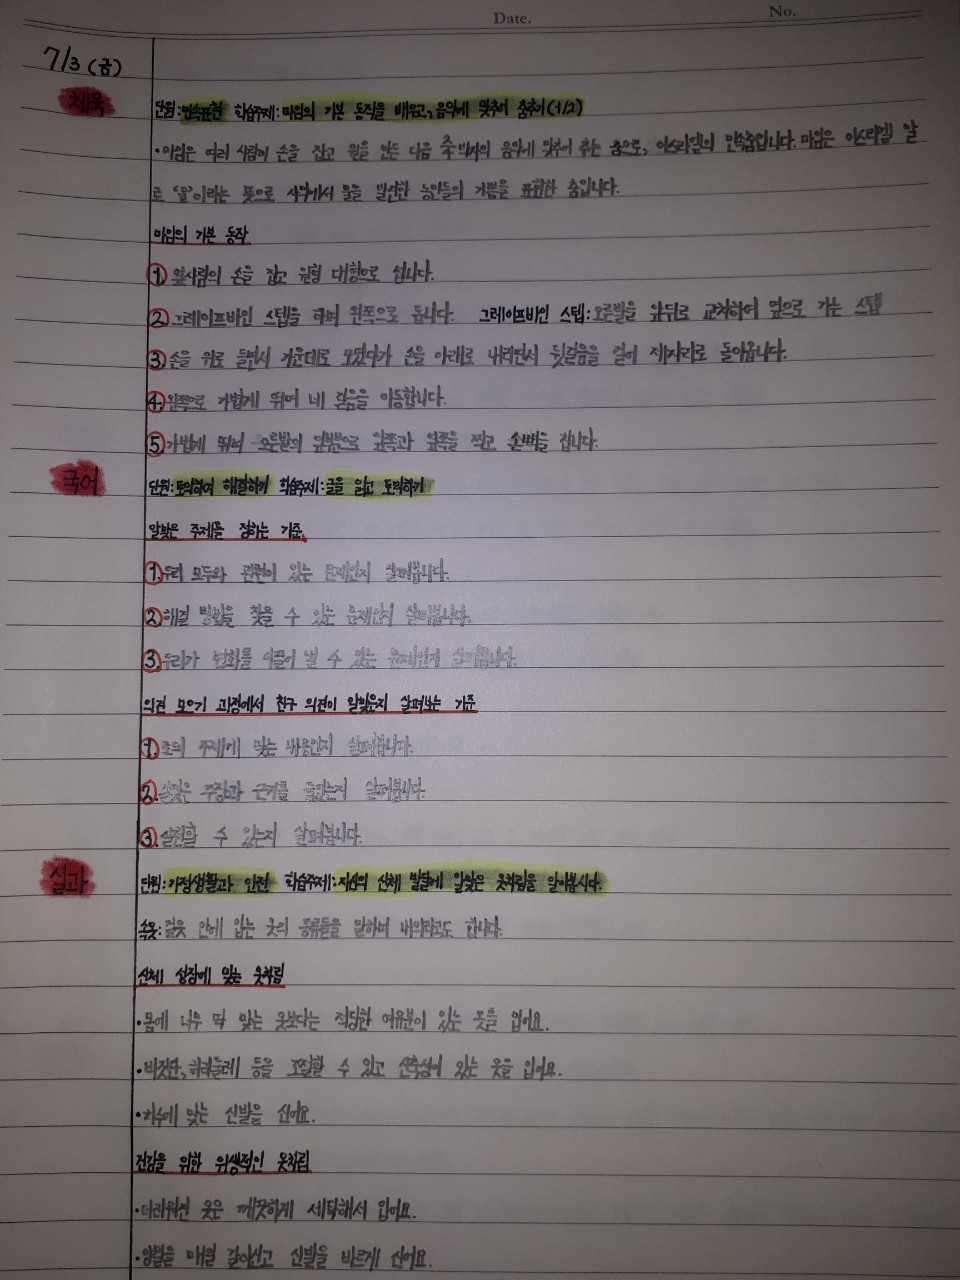 Date.
No.
7/3 (금)
체육
단원:민속표현 학습주제:마임의 기본 동작을 배우고, 음악에 맞추어 춤추기(1/2)
·마임은 여러 사람이 손을 잡고 원을 만든 다음 박자의 음악에 맞추어 추는 춤으로, 이스라엘의 민속춤입니다. 마임은 이스라엘 말
로 '물'이라는 뜻으로 사막에서 물을 발견한 농민들의 기쁨을 표현한 춤입니다.
마임의 기본 동작
① 옆사람의 손을 잡고 원형 대형으로 섭니다.
② 그레이프바인 스텝을 하며 왼쪽으로 돕니다. 그레이프바인 스텝:오른발을 앞뒤로 교차하여 옆으로 가는 스텝
③ 손을 위로 들면서 가운데로 모였다가 손을 아래로 내리면서 뒷걸음을 걸어 제자리로 돌아옵니다.
④ 왼쪽으로 가볍게 뛰며 네 걸음을 이동합니다.
⑤ 가볍게 뛰며 오른발의 앞쪽과 옆쪽을 찍고 손뼉을 칩니다.
국어
단원:토의하여 해결하기 학습주제:글을 읽고 토의하기
알맞은 주제를 정하는 기준
① 우리 모두와 관련이 있는 문제인지 살펴봅니다.
② 해결 방법을 찾을 수 있는 문제인지 살펴봅니다.
③ 우리가 변화를 이끌어 낼 수 있는 문제인지 살펴봅니다.
의견 모으기 과정에서 친구 의견이 알맞은지 살펴보는 기준
①.토의 주제에 맞는 내용인지 살펴봅니다.
②.알맞은 주장과 근거를 들었는지 살펴봅니다.
③.실천할 수 있는지 살펴봅니다.
실과
단원:가정생활과 안전 학습주제:자신의 신체 발달에 알맞은 옷차림을 알아봅시다.
속옷:겉옷 안에 입는 옷의 종류들을 말하며 내의라고도 합니다.
신체 성장에 맞는 옷차림
·몸에 너무 딱 맞는 옷보다는 적당한 여유분이 있는 옷을 입어요.
·바짓단, 허리둘레 등을 조절할 수 있고 신축성이 있는 옷을 입어요.
·치수에 맞는 신발을 신어요.
건강을 위한 위생적인 옷차림
·더러워진 옷은 깨끗하게 세탁해서 입어요.
·양말을 매일 갈아신고 신발을 바르게 신어요.